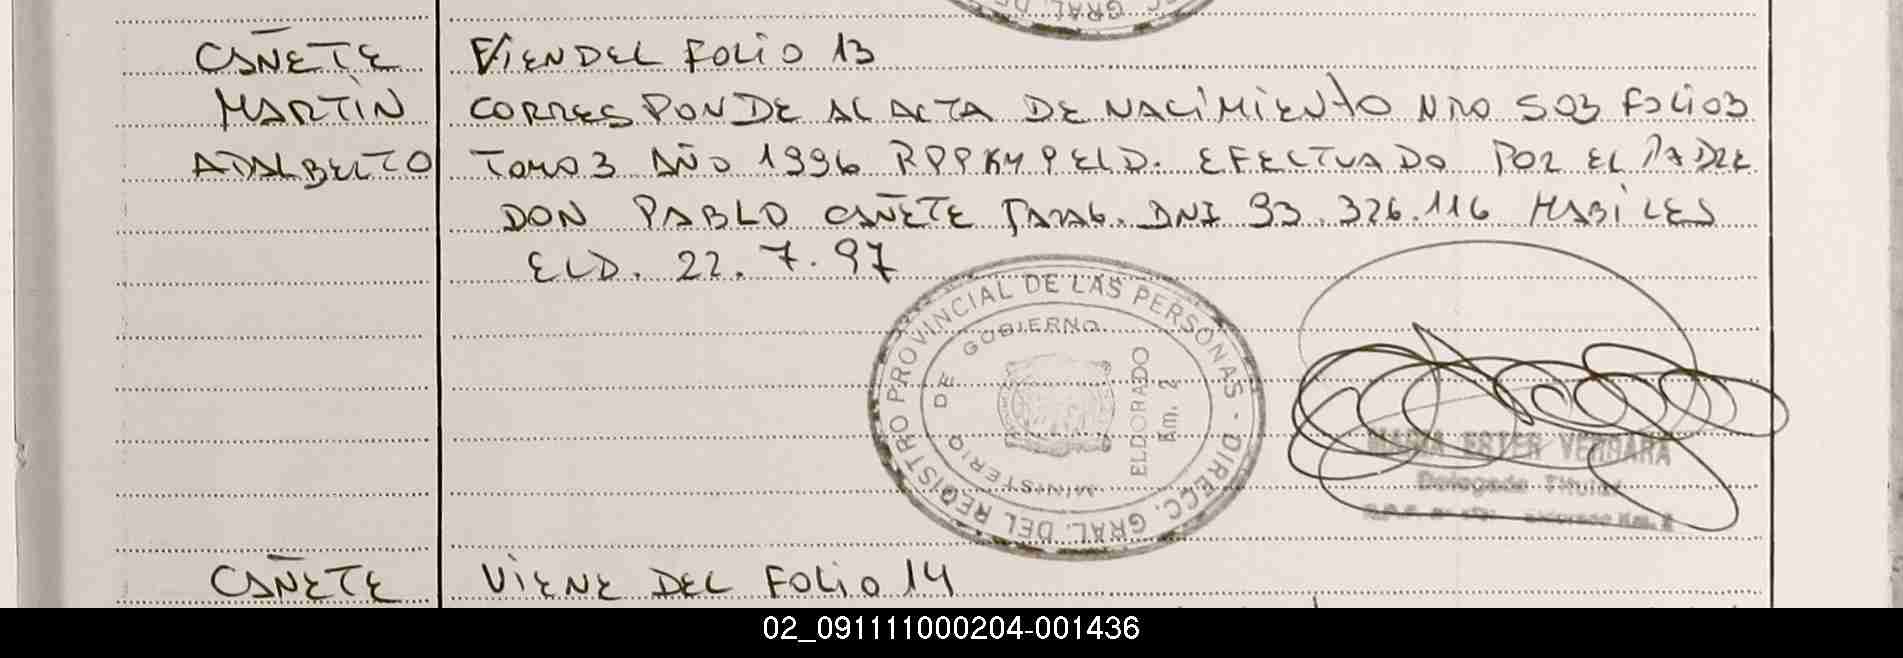 CAÑETE VIENDEL FOLIO 13
MARTIN CORRESPONDE AL ACTA DE NACIMIENTO NRO 503 FOLIO 3
ADALBERTO TOMO 3 AÑO 1996 RPPKM9 ELD. EFECTUADO POR EL PADRE
DON PABLO CAÑETE PARAG. DNI 93.326.116 HABILES
ELD. 22.7.97
DIRECC. GRAL. DEL REGISTRO PROVINCIAL DE LAS PERSONAS -
MINISTERIO DE GOBIERNO
ELDORADO
Km. 2
MARIA ESTER VERGARA
Delegada Titular
Eldorado Km. 2
CAÑETE VIENE DEL FOLIO 14
02_091111000204-001436